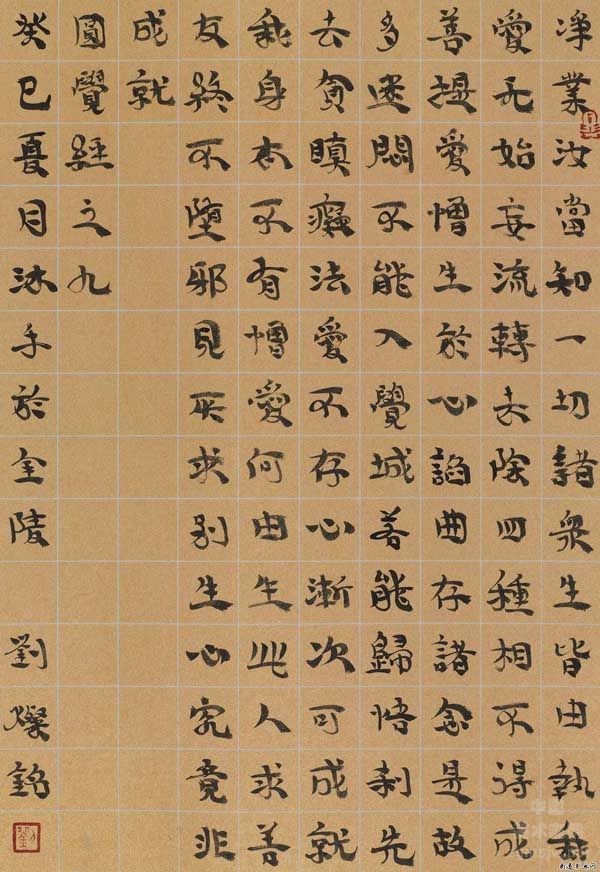 淨業汝當知一切諸衆生皆由執我
愛无始妄流轉去除四種相不得成
善提愛憎生於心諂曲存諸念是故
多迷悶不能入覺城若能歸悟刹先
去貪瞋癡法愛不存心漸次可成就
我身本不有憎愛何由生此人求善
友終不墮邪見所求別生心究竟非
成就
圓覺經之九
癸巳夏月沐手於金陵 劉燦銘